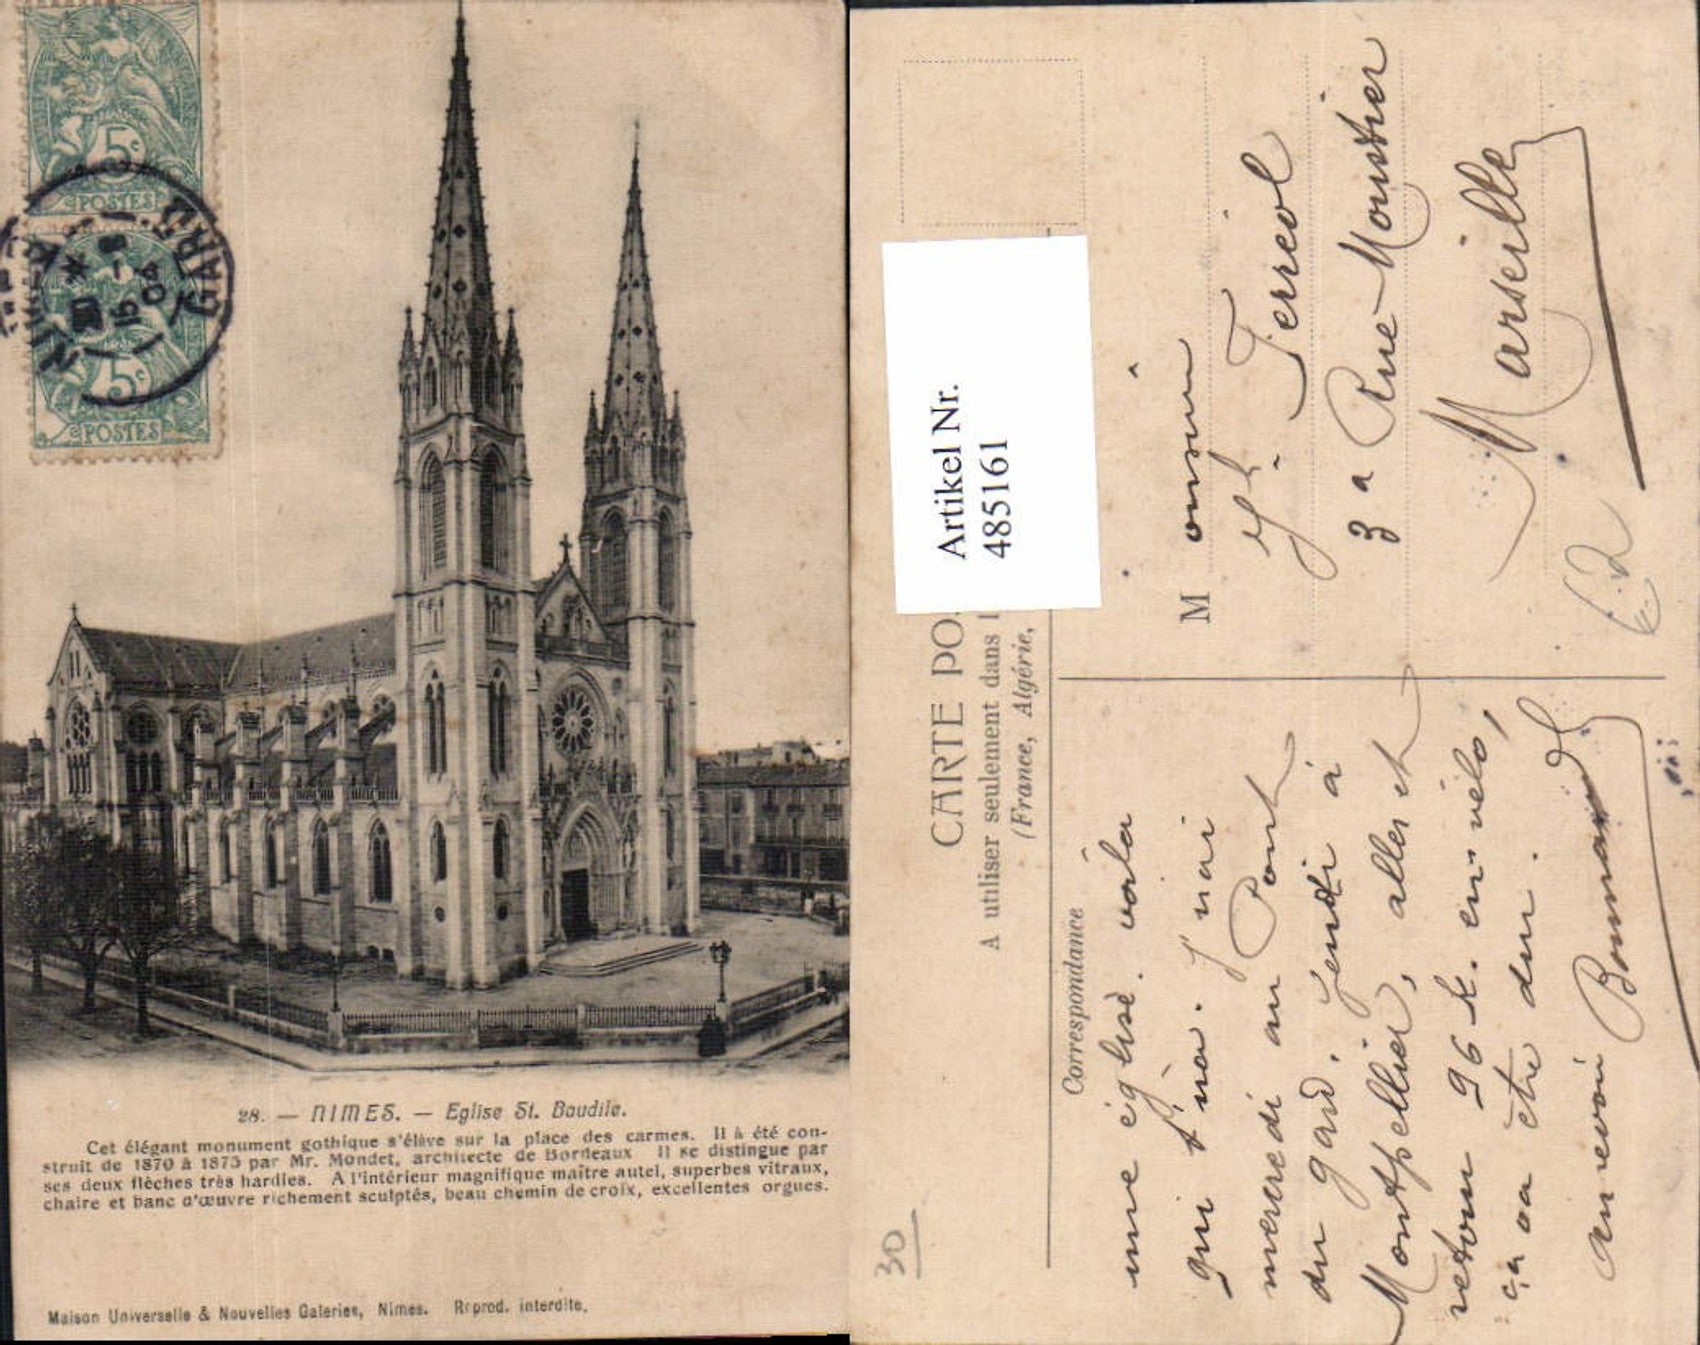 5c
POSTES
5c
POSTES
NIMES GARE
15 - 8
04
28. — NIMES. — Eglise St. Baudile.
Cet élégant monument gothique s'élève sur la place des carmes. Il à été con-
struit de 1870 à 1875 par Mr. Mondet, architecte de Bordeaux Il se distingue par
ses deux flèches très hardies. A l'intérieur magnifique maître autel, superbes vitraux,
chaire et banc d'œuvre richement sculptés, beau chemin de croix, excellentes orgues.
Maison Universelle & Nouvelles Galeries, Nimes. Reprod. interdite.
CARTE PO
A utiliser seulement dans l
(France, Algérie,
Artikel Nr.
485161
Correspondance
une église. voila
qui s'ira. J'irai
mercredi au Pont
du gard. Jeudi à
Montpellier, aller et
retour 96 k. en vélo,
ça va être dur.
au revoir
Monsieur
Ferreol
3 a Rue Moustier
Marseille
30